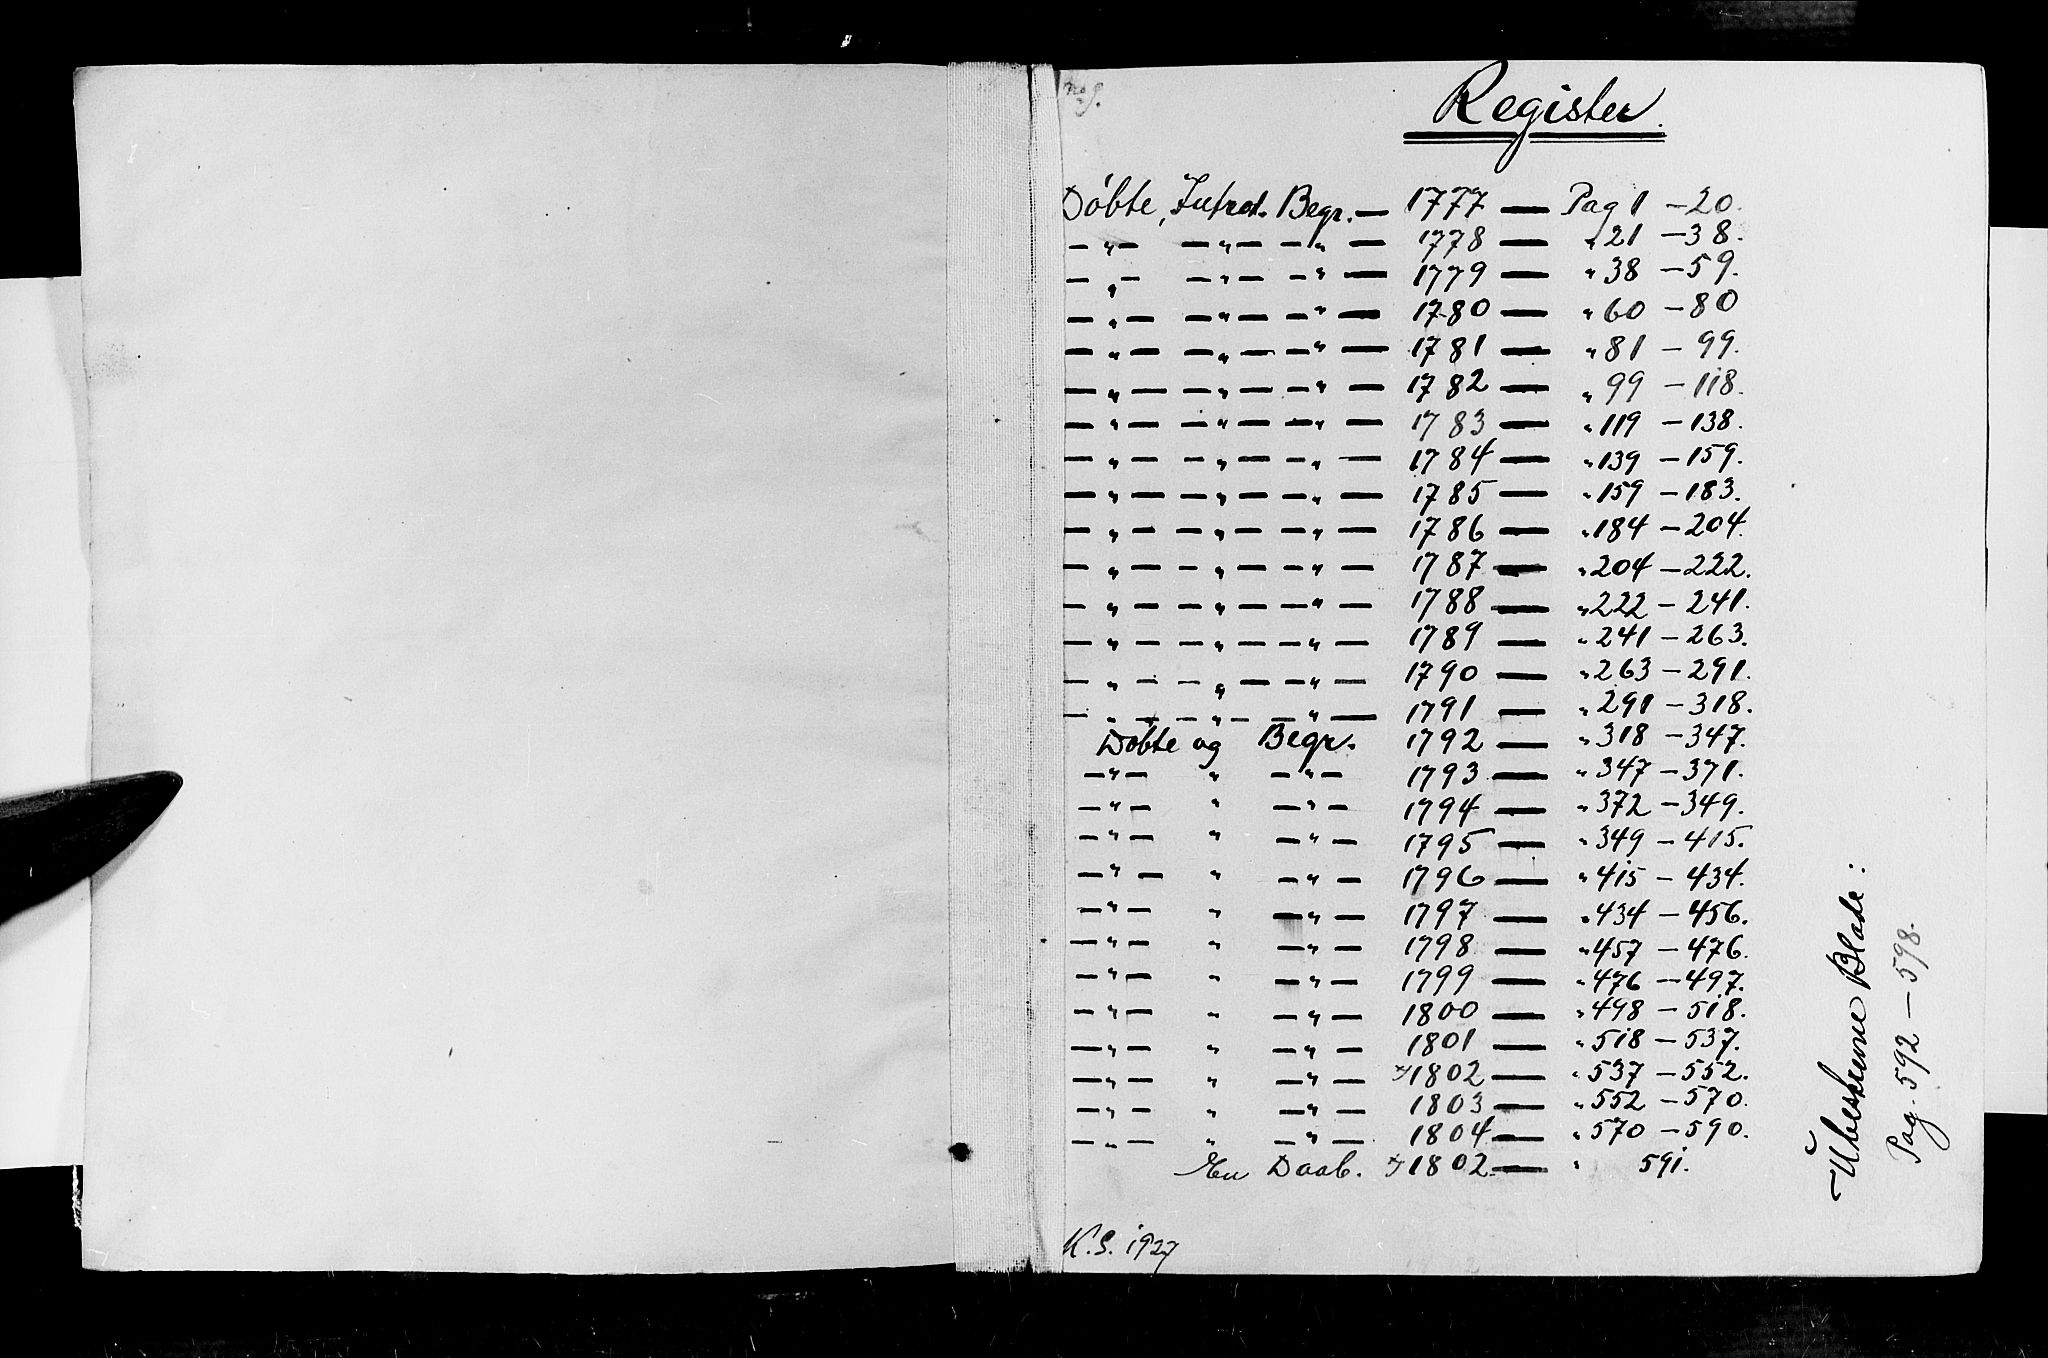 No 9.
Register.
Døbte, Introd. Begr. — 1777 — Pag 1 — 20.
— „ — — „ — — „ — 1778 — „ 21 — 38.
— „ — — „ — — „ — 1779 — „ 38 — 59.
— „ — — „ — — „ — 1780 — „ 60 — 80
— „ — — „ — — „ — 1781 — „ 81 — 99.
— „ — — „ — — „ — 1782 — „ 99 — 118.
— „ — — „ — — „ — 1783 — „ 119 — 138.
— „ — — „ — — „ — 1784 — „ 139 — 159.
— „ — — „ — — „ — 1785 — „ 159 — 183.
— „ — — „ — — „ — 1786 — „ 184 — 204.
— „ — — „ — — „ — 1787 — „ 204 — 222.
— „ — — „ — — „ — 1788 — „ 222 — 241.
— „ — — „ — — „ — 1789 — „ 241 — 263.
— „ — — „ — — „ — 1790 — „ 263 — 291.
— „ — — „ — — „ — 1791 — „ 291 — 318.
Døbte og Begr. 1792 — „ 318 — 347.
— „ — „ — „ — 1793 — „ 347 — 371.
— „ — „ — „ — 1794 — „ 372 — 349.
— „ — „ — „ — 1795 — „ 349 — 415.
— „ — „ — „ — 1796 — „ 415 — 434.
— „ — „ — „ — 1797 — „ 434 — 456.
— „ — „ — „ — 1798 — „ 457 — 476.
— „ — „ — „ — 1799 — „ 476 — 497.
— „ — „ — „ — 1800 — „ 498 — 518.
— „ — „ — „ — 1801 — „ 518 — 537.
— „ — „ — „ — 1802 — „ 537 — 552.
— „ — „ — „ — 1803 — „ 552 — 570.
— „ — „ — „ — 1804 — „ 570 — 590.
En Daab. 1802 — „ 591.
K.S. 1927
Ubeskrevne Blade:
Pag. 592 — 598.